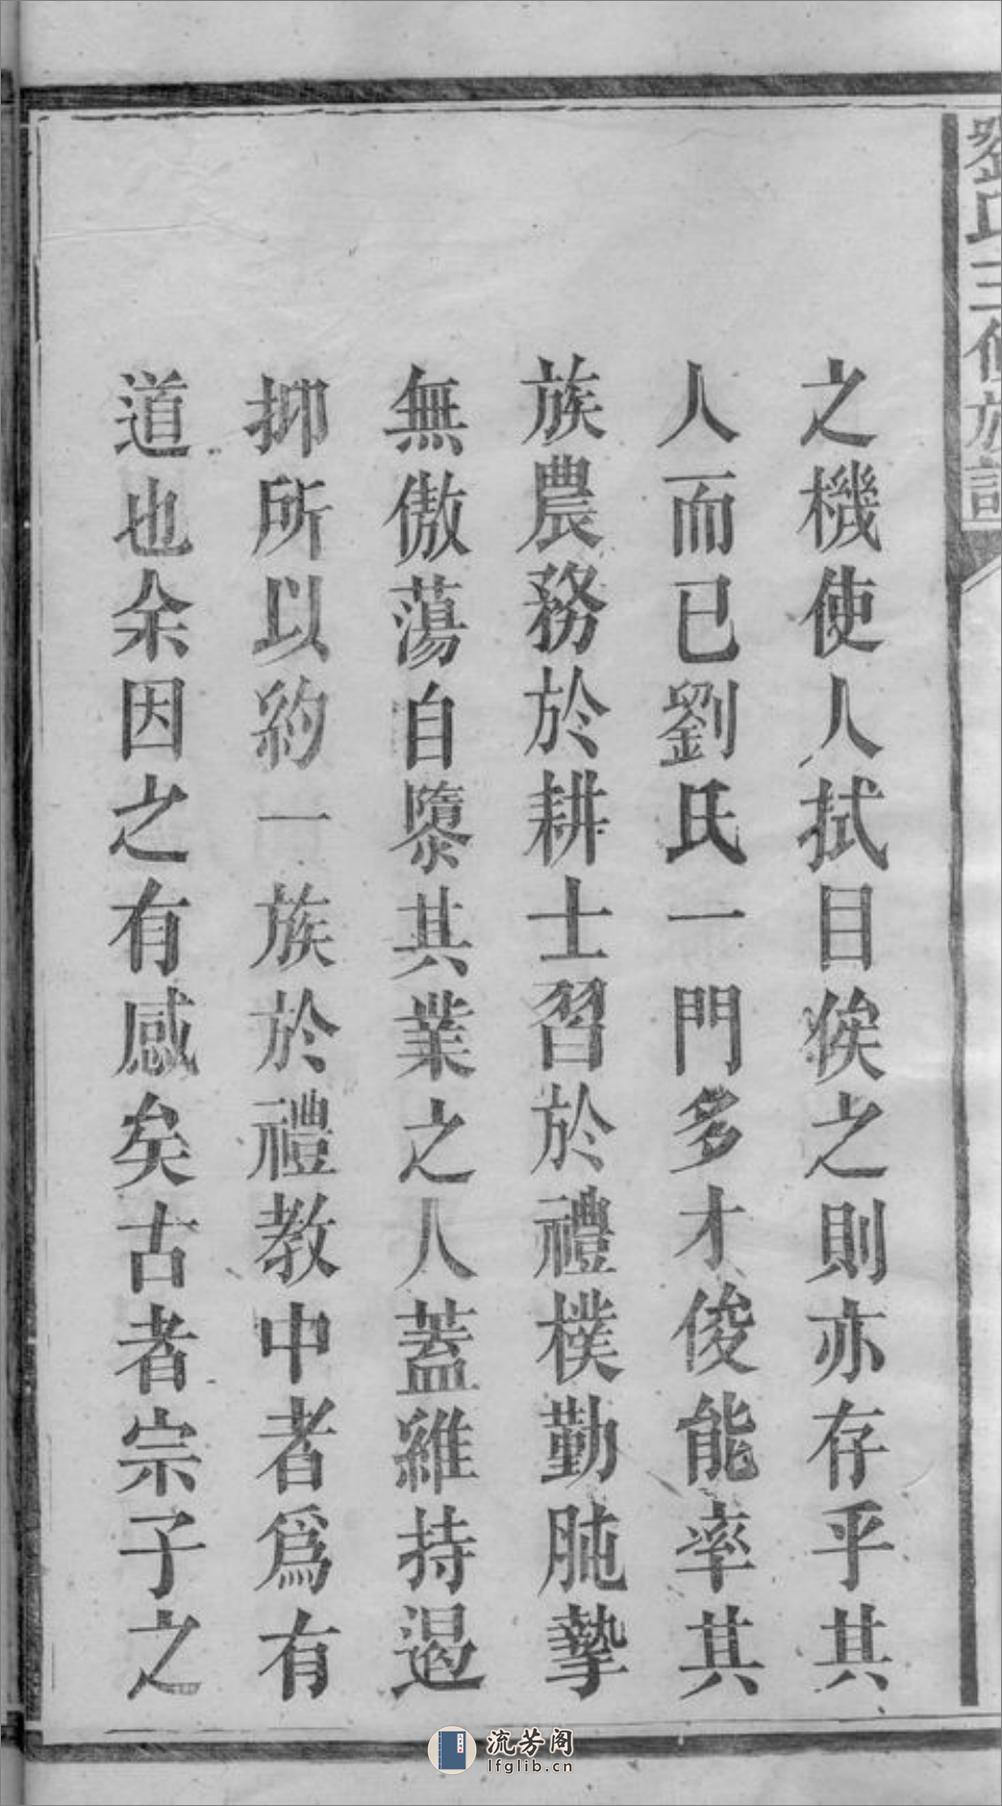 劉氏三修族譜
之機使人拭目俟之則亦存乎其
人而已劉氏一門多才俊能率其
族農務於耕士習於禮樸勤肫摯
無傲蕩自隳其業之人蓋維持遏
抑所以約一族於禮教中者爲有
道也余因之有感矣古者宗子之
流芳阁
lfglib.cn